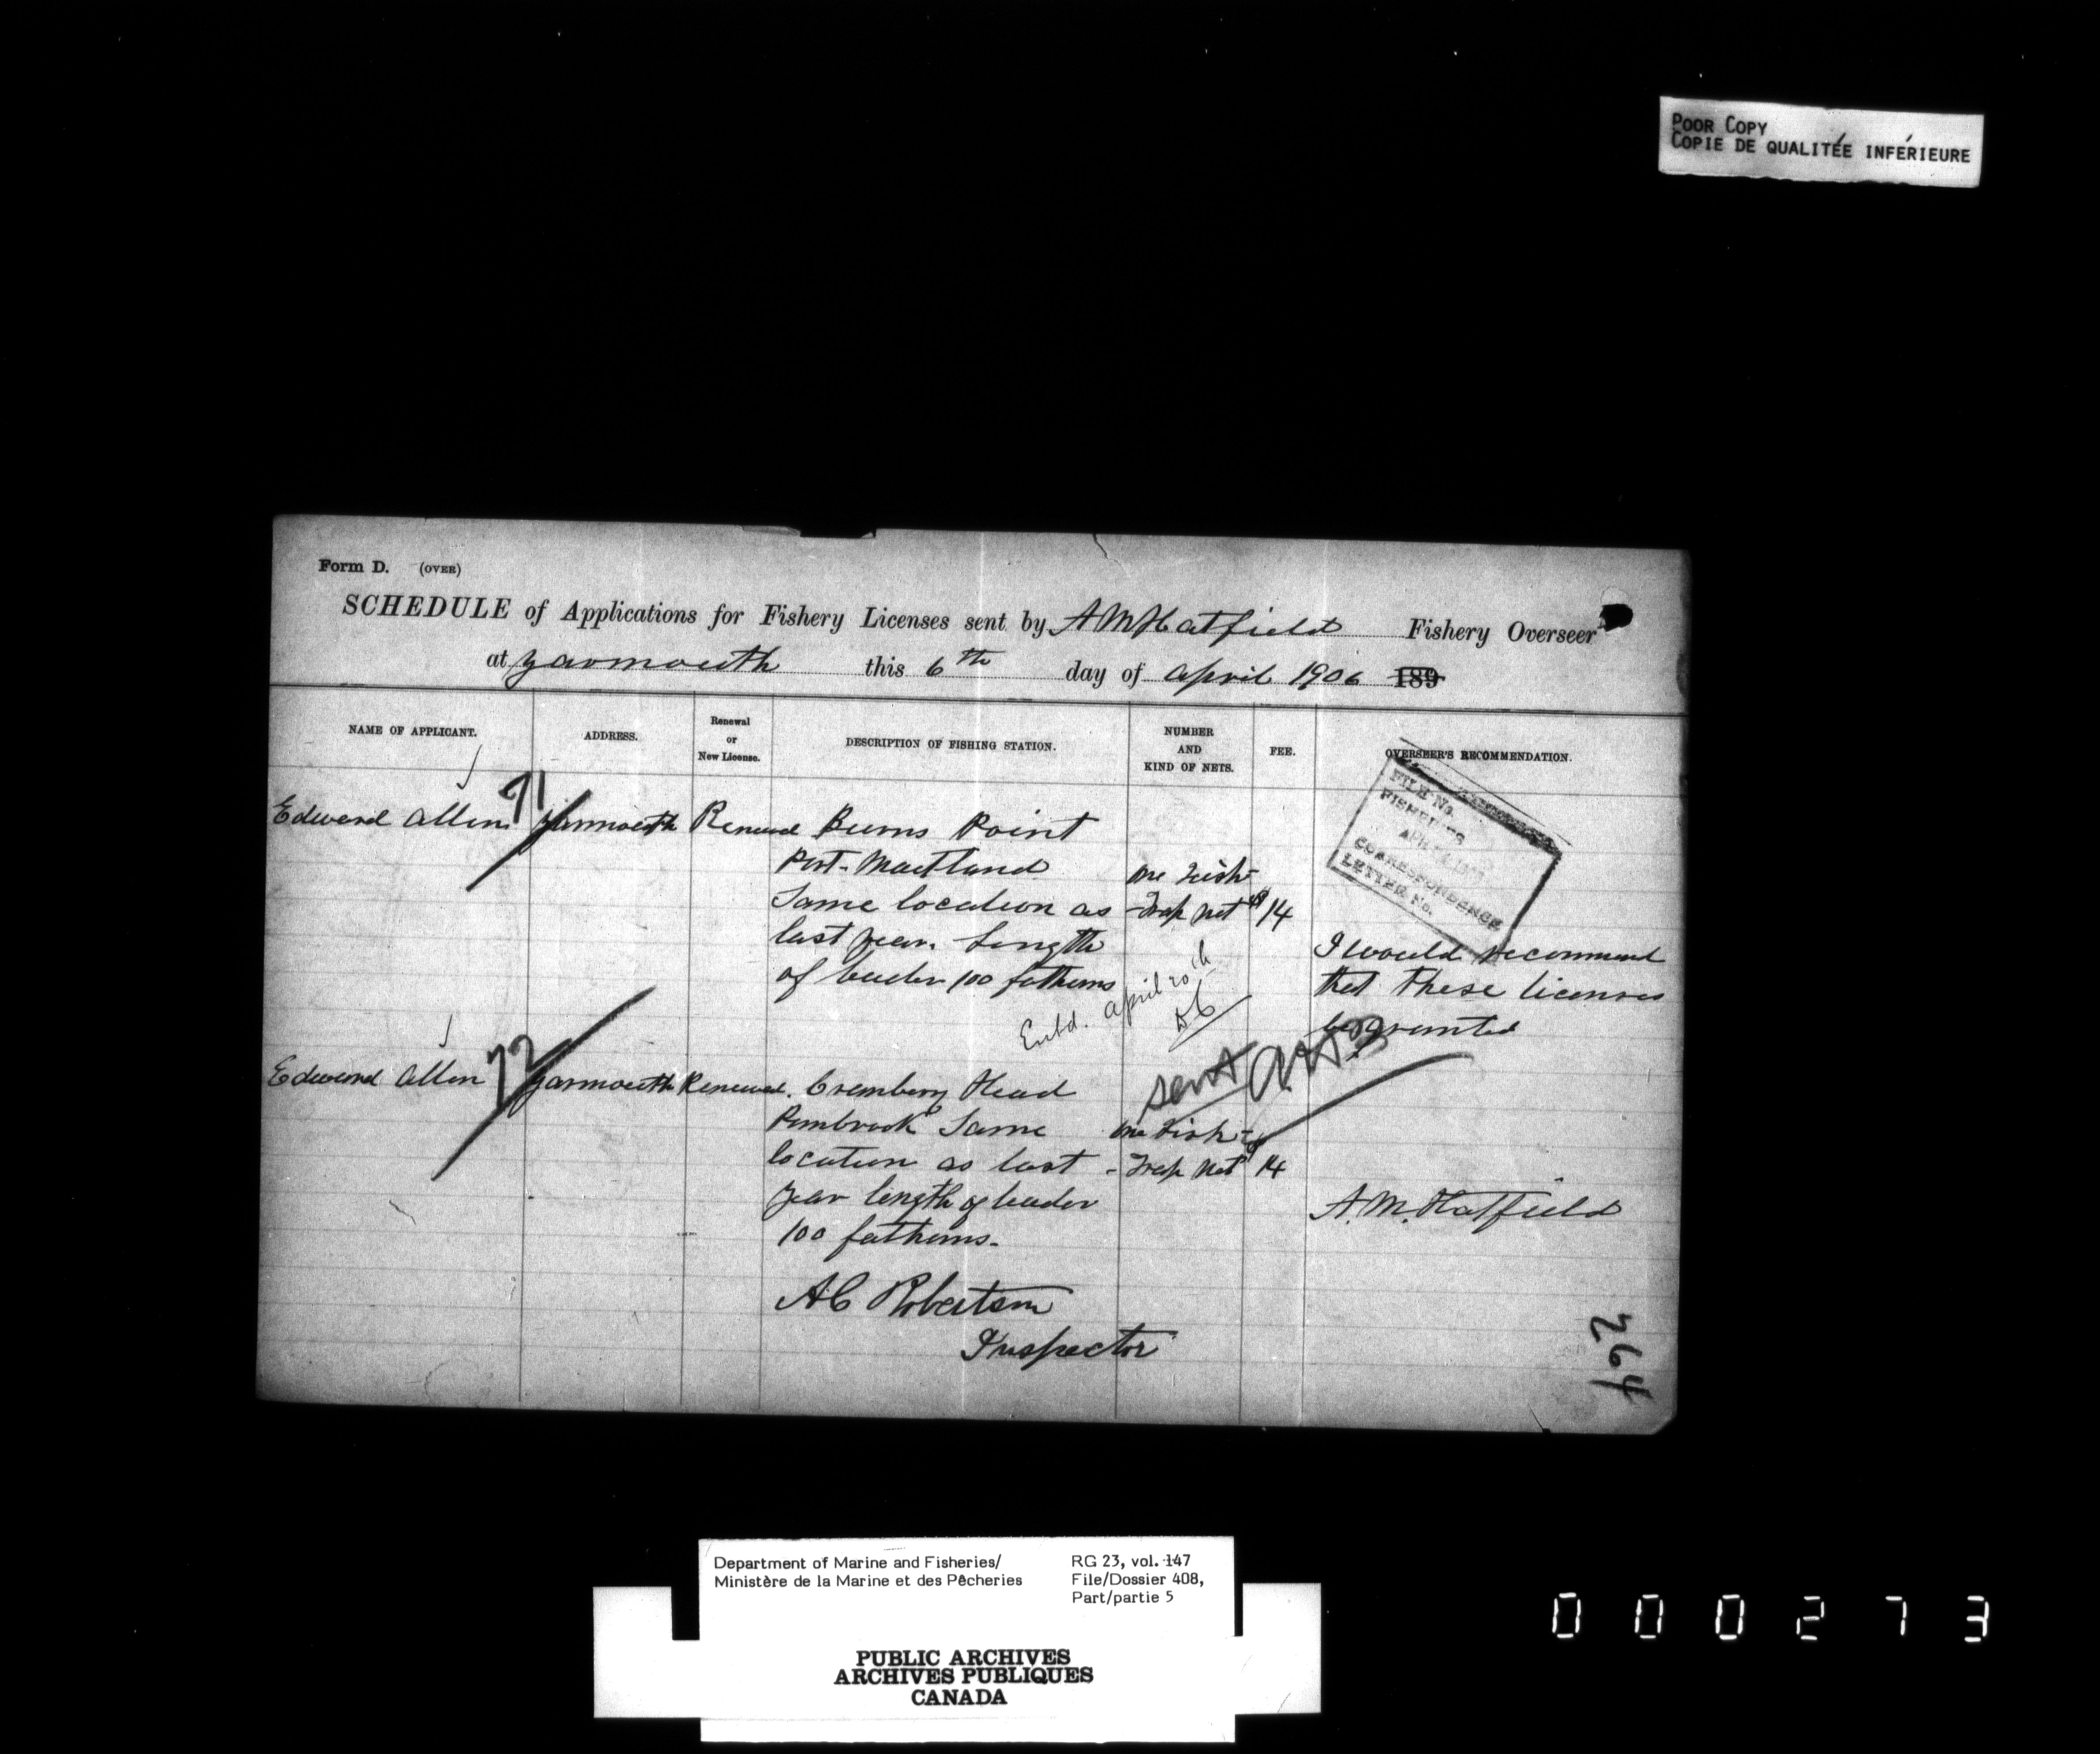 POOR COPY
COPIE DE QUALITÉE INFÉRIEURE
Form D. (OVER)
SCHEDULE of Applications for Fishery Licenses sent by A M Hatfield Fishery Overseer
at Yarmouth this 6th day of April 1906 189
NAME OF APPLICANT.
ADDRESS.
Renewal
or
New License.
DESCRIPTION OF FISHING STATION.
NUMBER
AND
KIND OF NETS.
FEE.
OVERSEER'S RECOMMENDATION.
FILE No.
FISHERIES
CORRESPONDENCE
LETTER No.
71
Edward Allen Yarmouth Renewal Burns Point
Port Maitland
Same location as
last year. Length
of leader 100 fathoms
One Fish
Trap Net $14
I would recommend
that these licenses
be granted
Entd. April 20th
Sent
72
Edward Allen Yarmouth Renewal. Cranberry Head
Pembrook Same
location as last
year length of leader
100 fathoms.
One Fish
Trap Net $14
A. M. Hatfield
A C Robertson
Inspector
264
Department of Marine and Fisheries/
Ministère de la Marine et des Pêcheries
RG 23, vol. 147
File/Dossier 408,
Part/partie 5
PUBLIC ARCHIVES
ARCHIVES PUBLIQUES
CANADA
000273